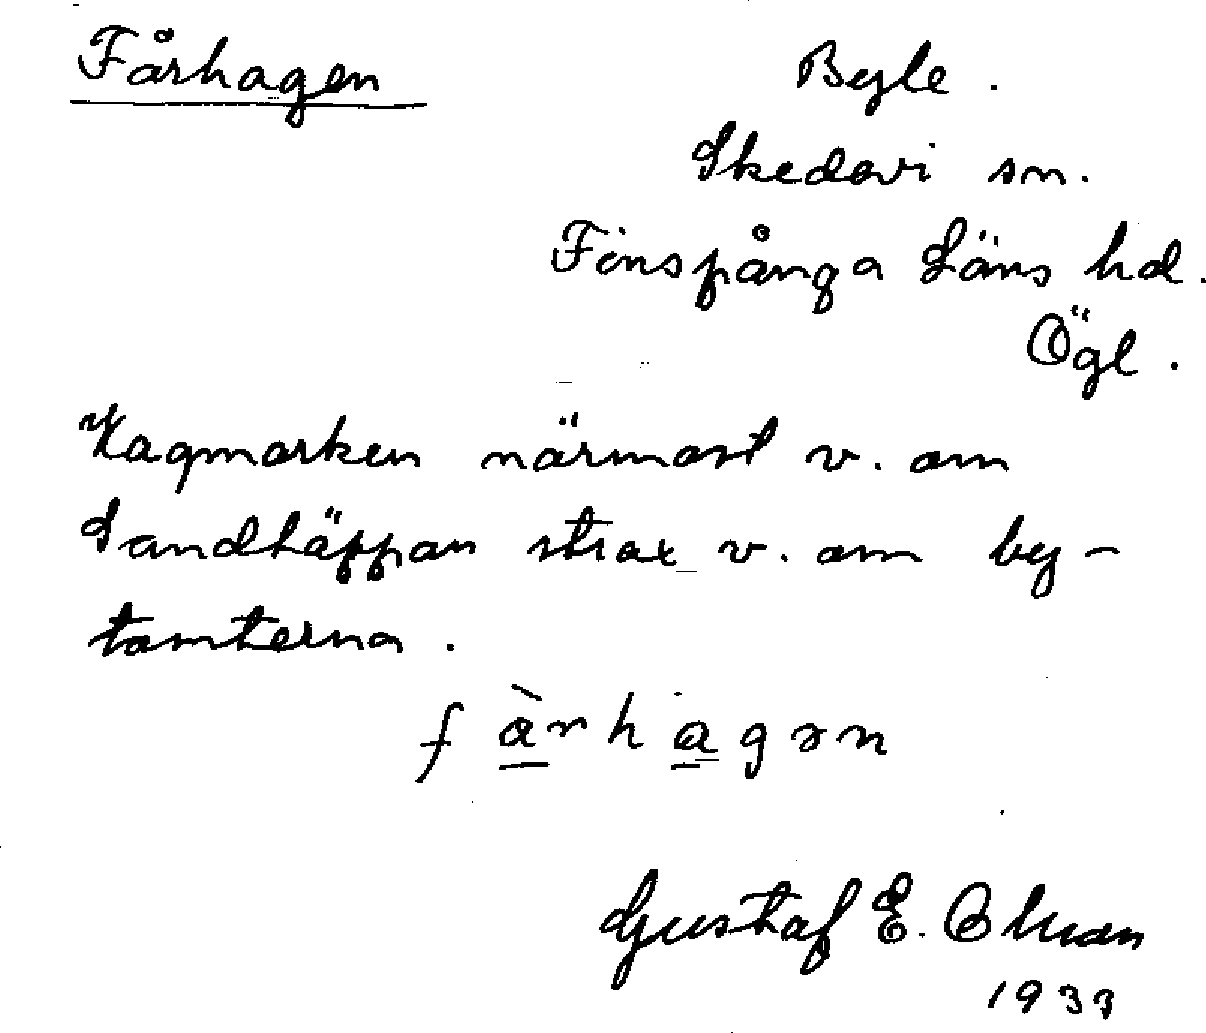 Fårhagen
Byle.
Skedevi sn.
Finspånga Läns hd.
Ögl.
Hagmarken närmast v. om
Sandtäppan strax v. om by-
tomterna.
fàrhagən
Gustaf E.
1933